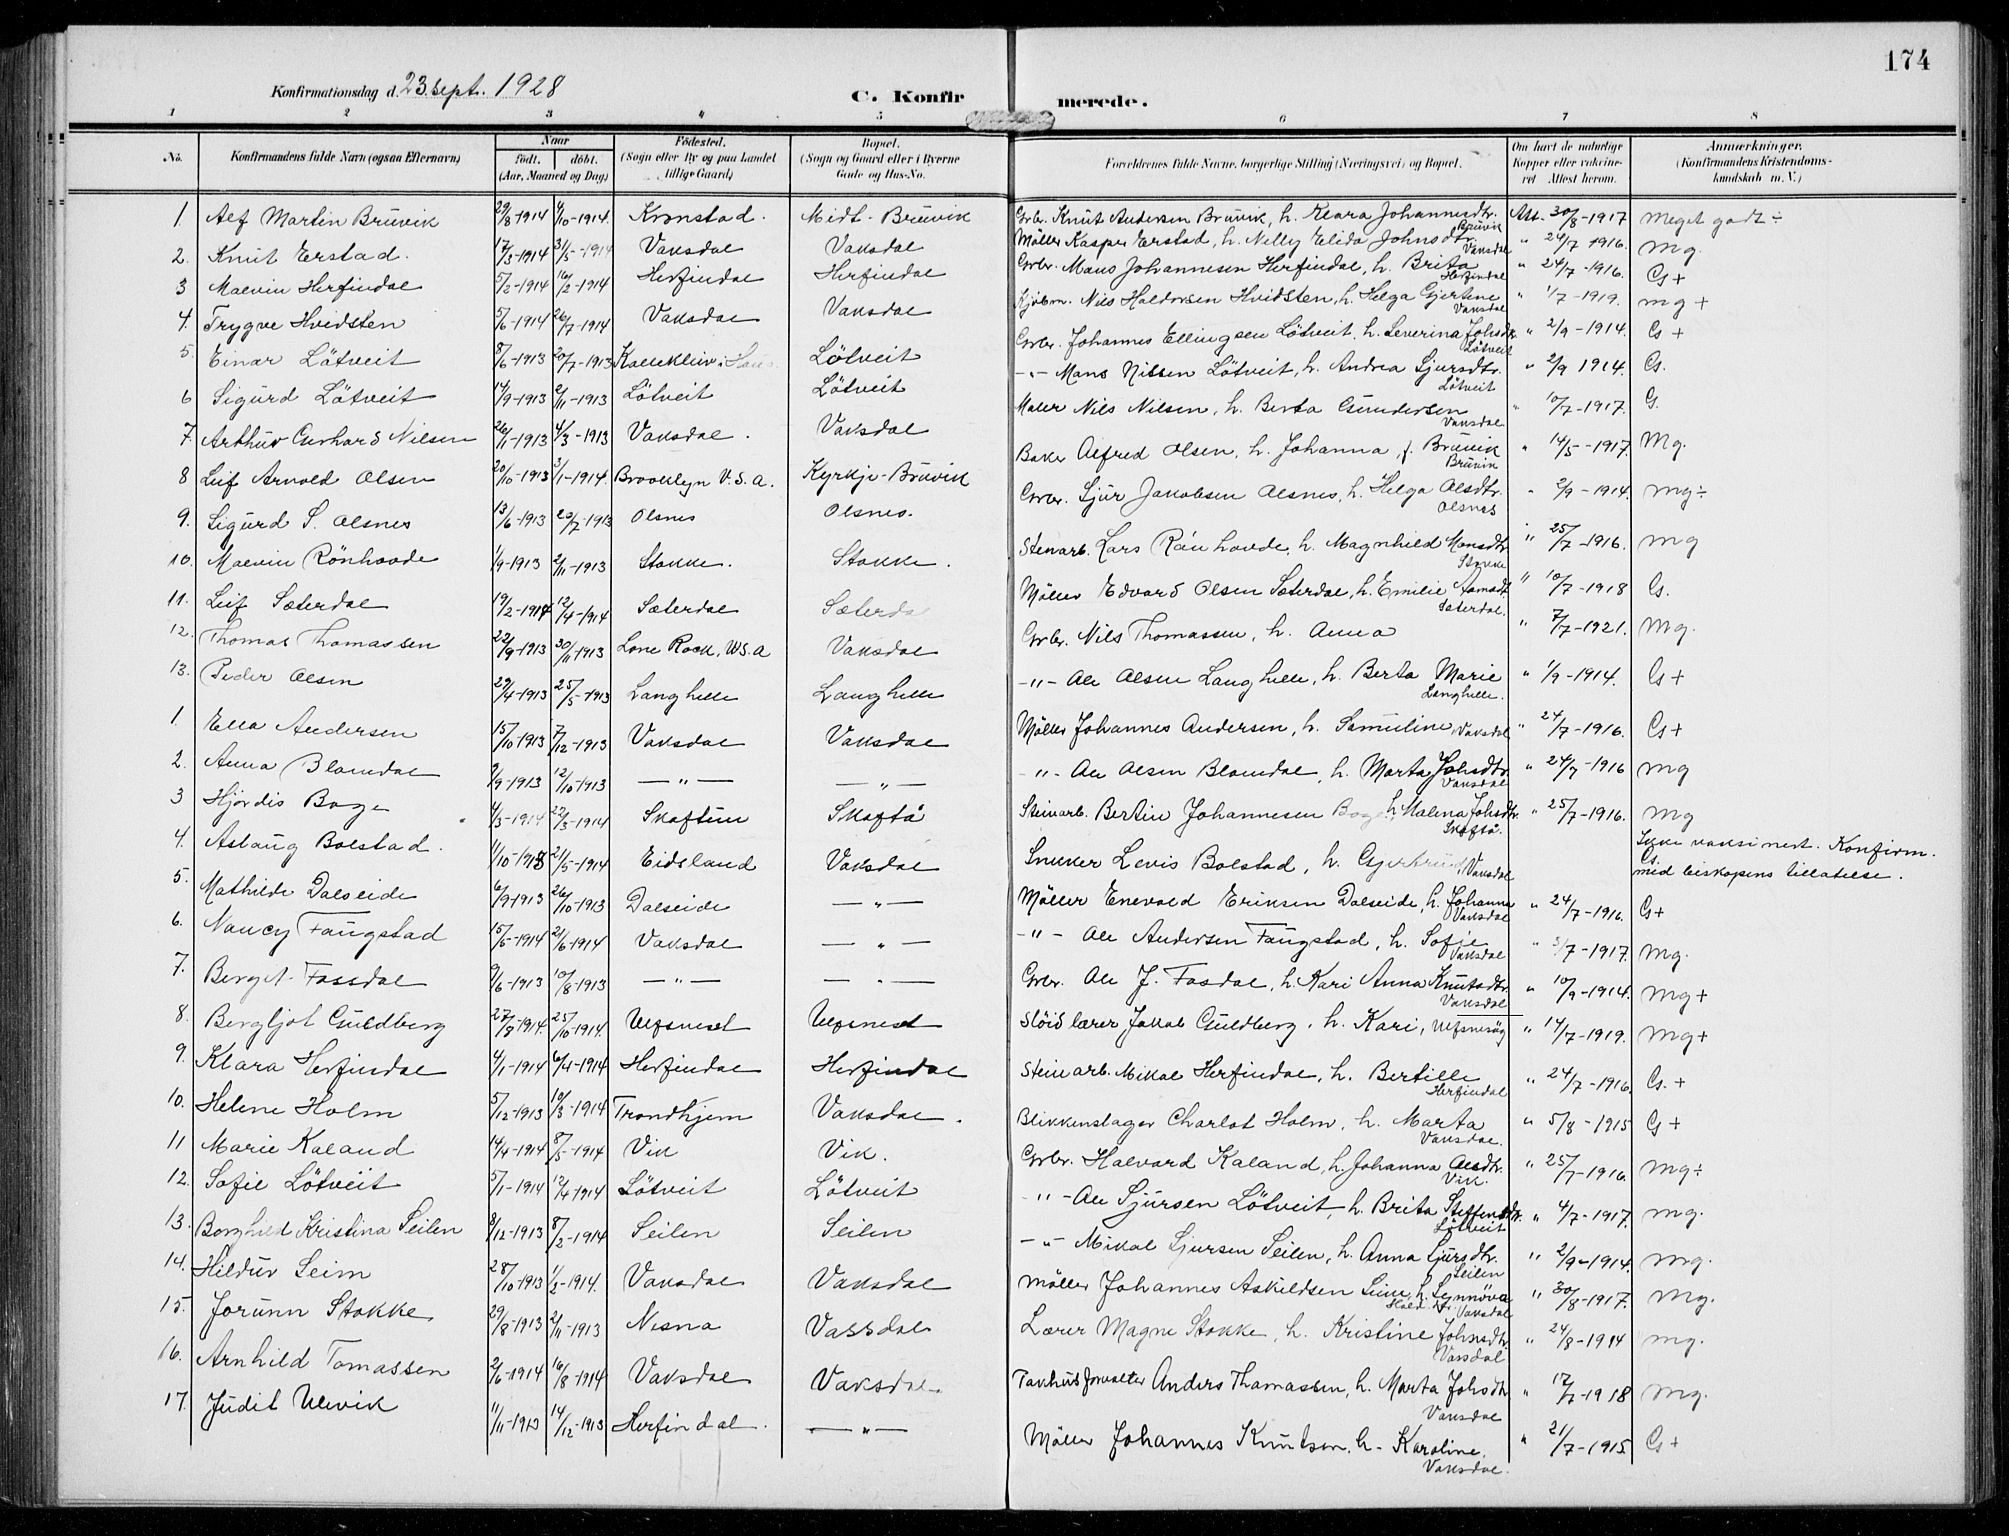 174
Konfirmationsdag d. 23. sept. 1928
C. Konfir merede.
1 2 3 4 5 6 7 8
No. Konfirmandens fulde Navn (ogsaa Efternavn) Naar födt. döbt. (Aar, Maaned og Dag) Födested. (Sogn eller By og paa Landet tillige Gaard) Bopæl. (Sogn og Gaard eller i Byerne Gade og Hus-No. Forældrenes fulde Navne, borgerlige Stilling (Næringsvei) og Bopæl. Om havt de naturlige Kopper eller vaccineret Attest herom. Anmærkninger. (Konfirmandens Kristendomskundskab m. V.)
1. Alf Martin Bruvik 29/8-1914 4/10-1914 Kronstad. Midt-Bruvik Grbr. Knut Andersen Bruvik, h. Klara Johannesdtr. Bruvik Att. 30/8-1917 meget godt ÷
2. Knut Erstad. 17/3-1914 31/5-1914 Vaksdal Vaksdal Möller Kasper Erstad, h. Nelly Elida Johnsdtr. Vaksdal " 24/7 1916. Mg.
3 Malvin Herfindal 5/2-1914 16/2-1914 Herfindal Herfindal Grbr. Mans Johannesen Herfindal, h. Brita Herfindal " 24/7-1916. G+
4. Trygve Hvidsten 5/6-1914 26/7-1914 Vaksdal Vaksdal Kjöbm. Nils Haldorsen Hvidsten, h. Helga Gjertine Vaksdal " 1/7-1919. mg+
5. Einar Lötveit 8/6-1913 20/7-1913 Kallekleiv i Lötveit Grbr. Johannes Ellingsen Lötveit, h. Severina Johsdtr. Lötveit " 2/9-1914. G+
6 Sigurd Lötveit 14/9-1913 2/11-1913 Lötveit Lötveit -"- Mons Nilsen Lötveit, h. Andrea Sjursdtr. Lötveit " 2/9 1914. G.
7. Arthur Gerhard Nilsen 26/11-1913 4/3-1913 Vaksdal. Vaksdal Maler Nils Nilsen, h. Berta Gundersen Vaksdal " 10/7-1917. G.
8 Leif Arnold Olsen 20/10-1913 3/1-1914. Brooklyn U.S.A. Kyrkje-Bruvik Baker Alfred Olsen, h. Johanna, f. Bruvik Bruvik " 14/5-1917. Mg.
9. Sigurd S. Olsnes 13/6-1913 20/7-1913 Olsnes Olsnes. Grbr. Sjur Jakobsen Olsnes, h. Helga Olsdtr. Olsnes " 2/9-1914. mg÷
10. Malvin Rönhovde 1/9-1913 2/11-1913 Stokke. Stokke. Steinarb. Lars Rönhovde, h. Magnhild Monsdtr. Stokke " 25/7-1916. mg
11. Leif Sæterdal 19/2-1914 12/4-1914 Sæterdal Sæterdal Möller Edvard Olsen Sæterdal, h. Emilie Sæterdal. " 10/7-1918 G.
12. Thomas Thomassen 22/9-1913 30/11-1913 Lone Rock, U.S.A Vaksdal Grbr. Nils Thomassen, h. Anna " 7/7-1921. Mg.
13. Peder Olsen 29/4-1913 25/5-1913 Langhelle Langhelle -"- Ole Olsen Langhelle, h. Berta Marie Langhelle. " 1/9-1914. G+
1. Ella Andersen 15/10-1913 7/12-1913 Vaksdal Vaksdal Möller Johannes Andersen, h. Samuline, Vaksdal " 24/7-1916. G+
2. Anna Blomdal 9/9-1913 12/10-1913 —"— —"— -"- Ole Olsen Blomdal, h. Marta Johsdtr. Vaksdal " 24/7-1916 mg
3 Hjördis Boge 4/3-1914 22/3-1914 Skaftun Skaftå Steinarb. Bertin Johannesen Boge, h. Malena Johsdtr. Skaftå. " 25/7-1916. mg
4. Aslaug Bolstad. 11/10-1913 21/5-1914 Eidsland Vaksdal Snekker Levis Bolstad, h. Gjertrud, Vaksdal Ikke vaksinert. Konfirm. med biskopens tillatelse. G.
5. Mathilde Dalseide 6/9-1913 26/10-1913 Dalseide —"— Möller Enevald Eriksen Dalseide, h. Johanna Vaksdal " 24/7-1916. G+
6. Nancy Faugstad 15/5-1914 21/6-1914 Vaksdal —"— -"- Ole Andersen Faugstad, h. Sofie Vaksdal " 3/7-1917. Mg.
7. Berget Fossdal 9/6-1913 10/8-1913 —"— —"— Grbr. Ole J. Fosdal, h. Kari Anna Knutsdtr. Vaksdal " 10/9-1914. mg+
8. Bergljot Guldberg 27/8-1914. 25/10-1914. Ulfsneset Ulfsneset Slöidlærer Jakob Guldberg, h. Kari, Ulfsnesöy " 14/7-1919. Mg+
9. Klara Herfindal 4/1-1914 6/4-1914 Herfindal Herfindal Steinarb. Mikal Herfindal, h. Bertille Herfindal " 24/7-1916. G.+
10. Helene Holm 5/12-1913 10/3-1914 Trondhjem Vaksdal. Blikkenslager Charlot Holm, h. Marta Vaksdal. " 5/8-1915 G+
11 Marie Kaland 14/4-1914 8/5-1914 Vik Vik. Grbr. Halvard Kaland, h. Johanna Olsdtr. Vik. " 25/7-1916. mg÷
12. Sofie Lötveit 5/1-1914 12/4-1914 Lötveit Lötveit -"- Ole Sjursen Lötveit, h. Brita Steffensdtr. Lötveit " 4/7-1917. mg.
13. Borghild Kristina Seilen 8/12-1913 8/2-1914 Seilen Seilen -"- Mikal Sjursen Seilen, h. Anna Sjursdtr. Seilen " 2/9-1914. mg.
14. Hildur Seim 28/10-1913 1/2-1914. Vaksdal Vaksdal Möller Johannes Askildsen Seim, h. Synnöva Vaksdal " 30/8-1917. Mg.
15. Jorunn Stokke 29/8-1913 2/11-1913 Nesna Vassdal Lærer Magne Stokke, h. Kristine Johnsdtr. Vassdal " 24/8-1914 mg.
16. Arnhild Tomassen 2/6-1914 16/8-1914 Vaksdal Vaksdal. Pakhusforvalter Anders Thomassen, h. Marta Johsdtr. Vaksdal " 17/7-1918 mg.
17. Judit Ulevik 11/11-1913 14/12-1913 Herfindal. —"— Möller Johannes Knutsen, h. Karoline, Vaksdal. " 21/7-1915 G+